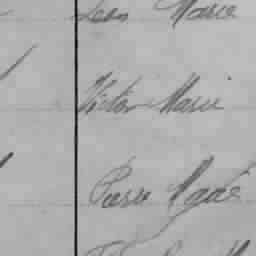 Léon Marie
Victor Marie
Pierre